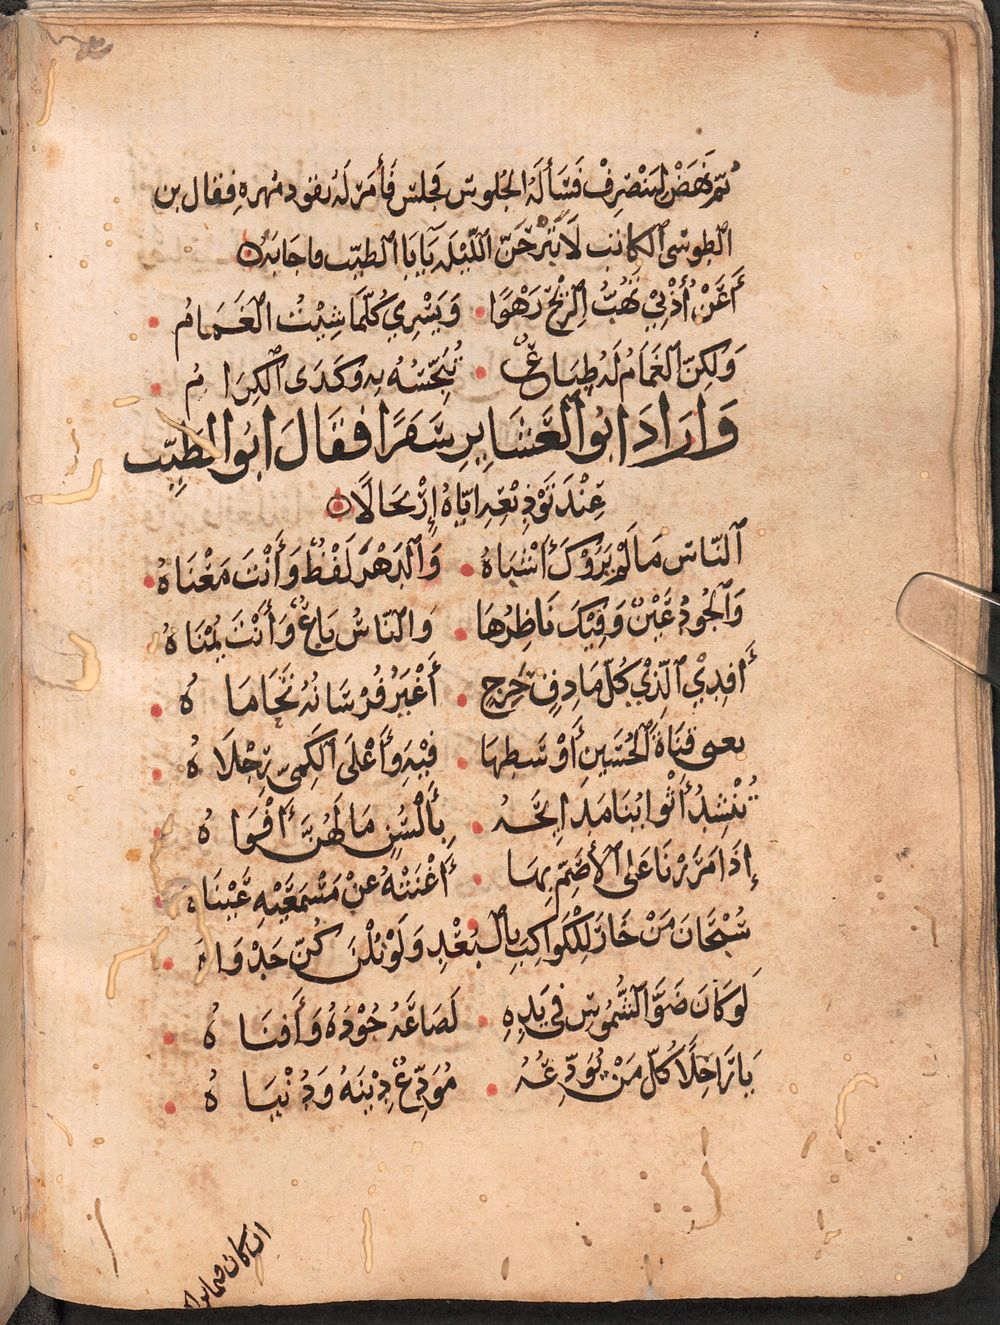 ثم نَهَضَ لينصرِفْ فسَألَهُ الجُلوس فجلسَ فأمَرَ لهُ بقود مُهره فقال بن
الطوسى الكاتب لَا تَبْرَحَنّ اللّيْلَه يَابَا الطيّب فاجابه
أَعَنْ أُذْنِيْ تَهُبُّ اِلرِّيْحُ رَهْوًا وَيَسْرِي كُلّمَا شِيْتُ الغَمَامُ
وَلكِنّ الغَمَامُ لَه طِبَاعٌ تَبَجُّسُهُ بِه وَكَذَى الكِرَامُ
وَارَادَ ابُو العَشَايِرِ سَفَرًا فقَالَ ابُو الطَيِّب
عِنْدَ تَوْدِيْعِهِ ايّاهُ اِرْتِحَالًا
النّاس مَا لَمْ يَرَوْكَ أَشْبَاهُ وَالدّهْرُ لَفْظٌ وَأَنْتَ مَعْنَاهُ
وَالجُودُ عَيْنٌ وَفِيْكَ نَاظِرُهَا وَالنّاسُ بَاعٌ وَأَنْتَ يُمْنَاهُ
أَفدِيْ اَلّذِيْ كُلّ مَادِفٍ حَرِجٍ أَغْبَرُ فُرْسَانُهُ تَحَامَاهُ
بعى قَنَاةَ الحُسَينِ أَوْسَطِهَا فِيْهِ وَأَعْلَى الكَمِىّ رِجْلَاهُ
تُنْشِدُ أَثْوابُنَا مَدَايحَهُ بِأَلْسُنٍ مَا لَهُنّ أَفْوَاهُ
إذَا مَرَرْنَا عَلى الأَصَمّ بِهَا أَغْنَتْهُ عَنْ مَسْمَعَيْهِ عَيْنَاهُ
سُبْحَانَ مَنْ خَارَ لِلْكَوَاكِبِ بِالبُعْدِ وَلَوْ نُلْنَ كُنّ جَدْوَاهُ
لَو كَانَ ضَوَّ الشُّمُوسِ في يَدِهِ لَصَاعَهُ جُوْدُهُ وَأَفنَاهُ
يَا رَاحِلًا كُلّ مَنْ يُوَدّعُهُ مُوَدِّعٌ دِيْنَهُ وَدُنْيَاهُ
ان كان فيما